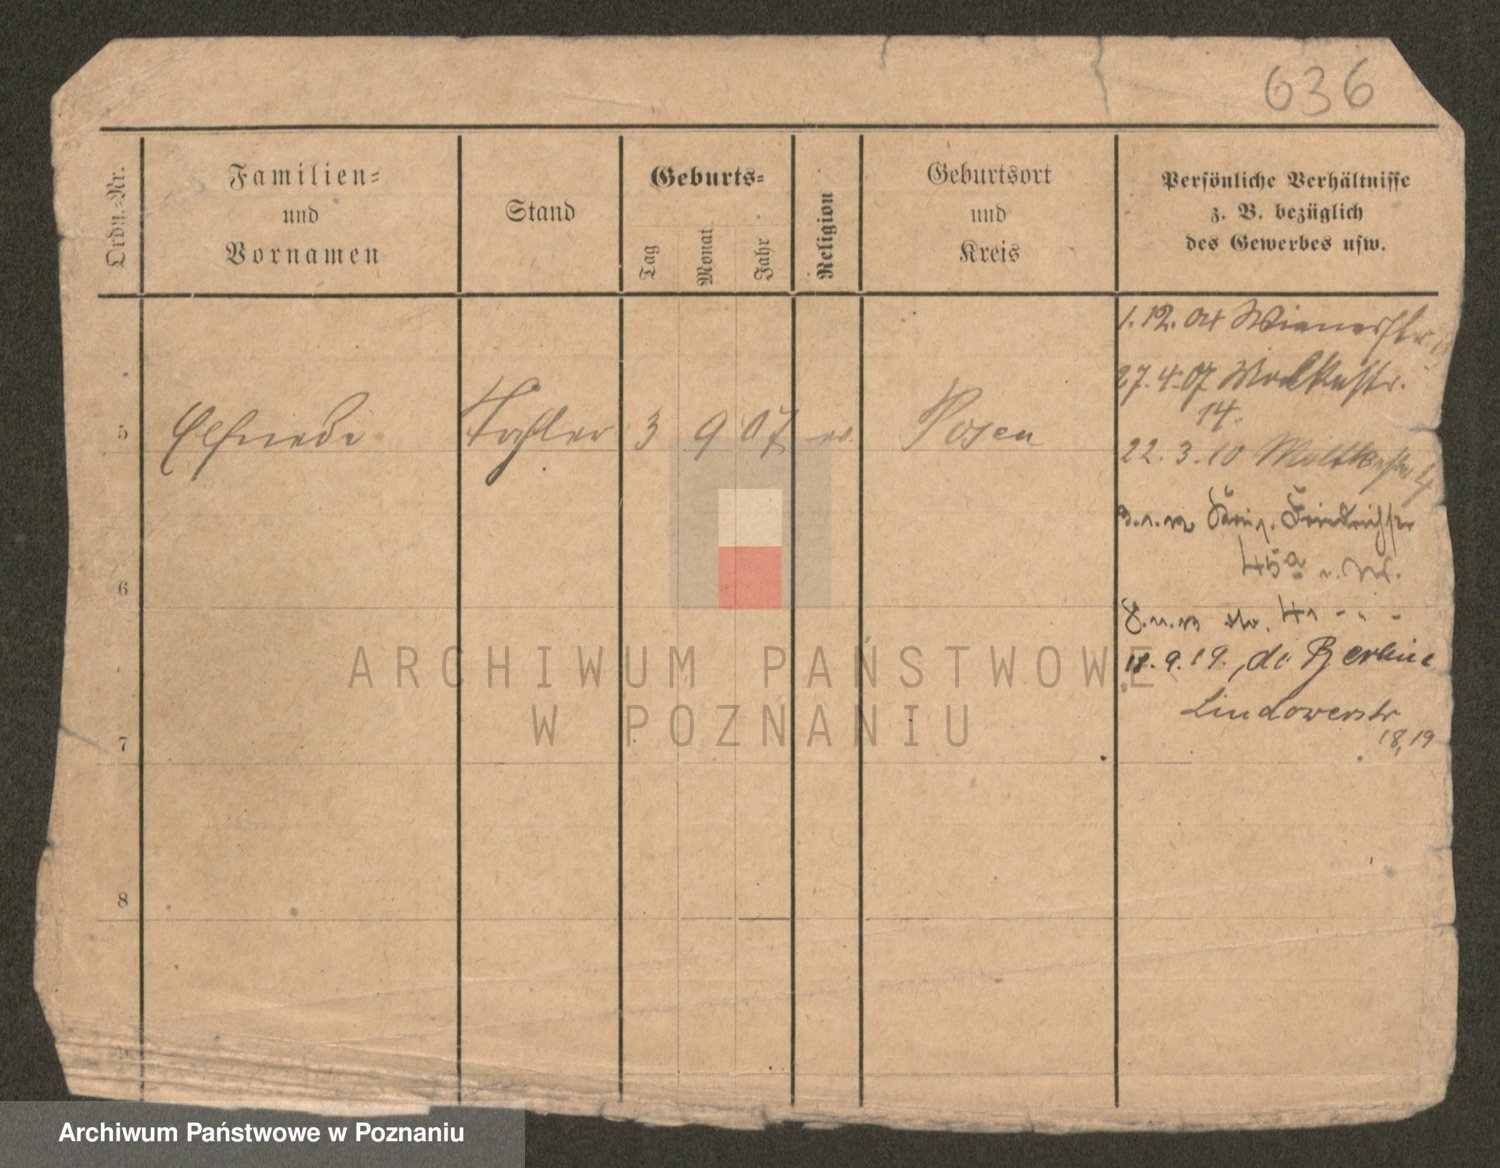 636
Ordn.-Nr.
Familien-
und
Vornamen
Stand
Geburts-
Tag
Monat
Jahr
Religion
Geburtsort
und
Kreis
Persönliche Verhältnisse
z. B. bezüglich
des Gewerbes usw.
1. 12. 04 Wienerstr.
27. 4. 07 Moltkestr.
14.
5 Elfriede Tochter 3 9 07 ev. Posen
22. 3. 10 Moltkestr.
Friedrichstr
6
45a
18. 9. 19. do Berlina
Lindowerstr
18, 19
7
8
ARCHIWUM PAŃSTWOWE
W POZNANIU
Archiwum Państwowe w Poznaniu